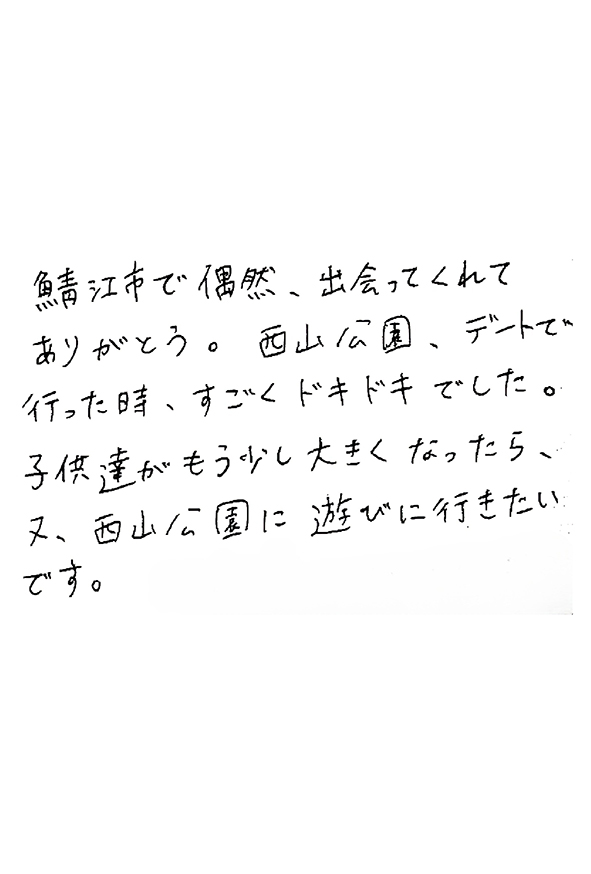 鯖江市で偶然、出会ってくれて
ありがとう。西山公園、デートで
行った時、すごくドキドキでした。
子供達がもう少し大きくなったら、
又、西山公園に遊びに行きたい
です。